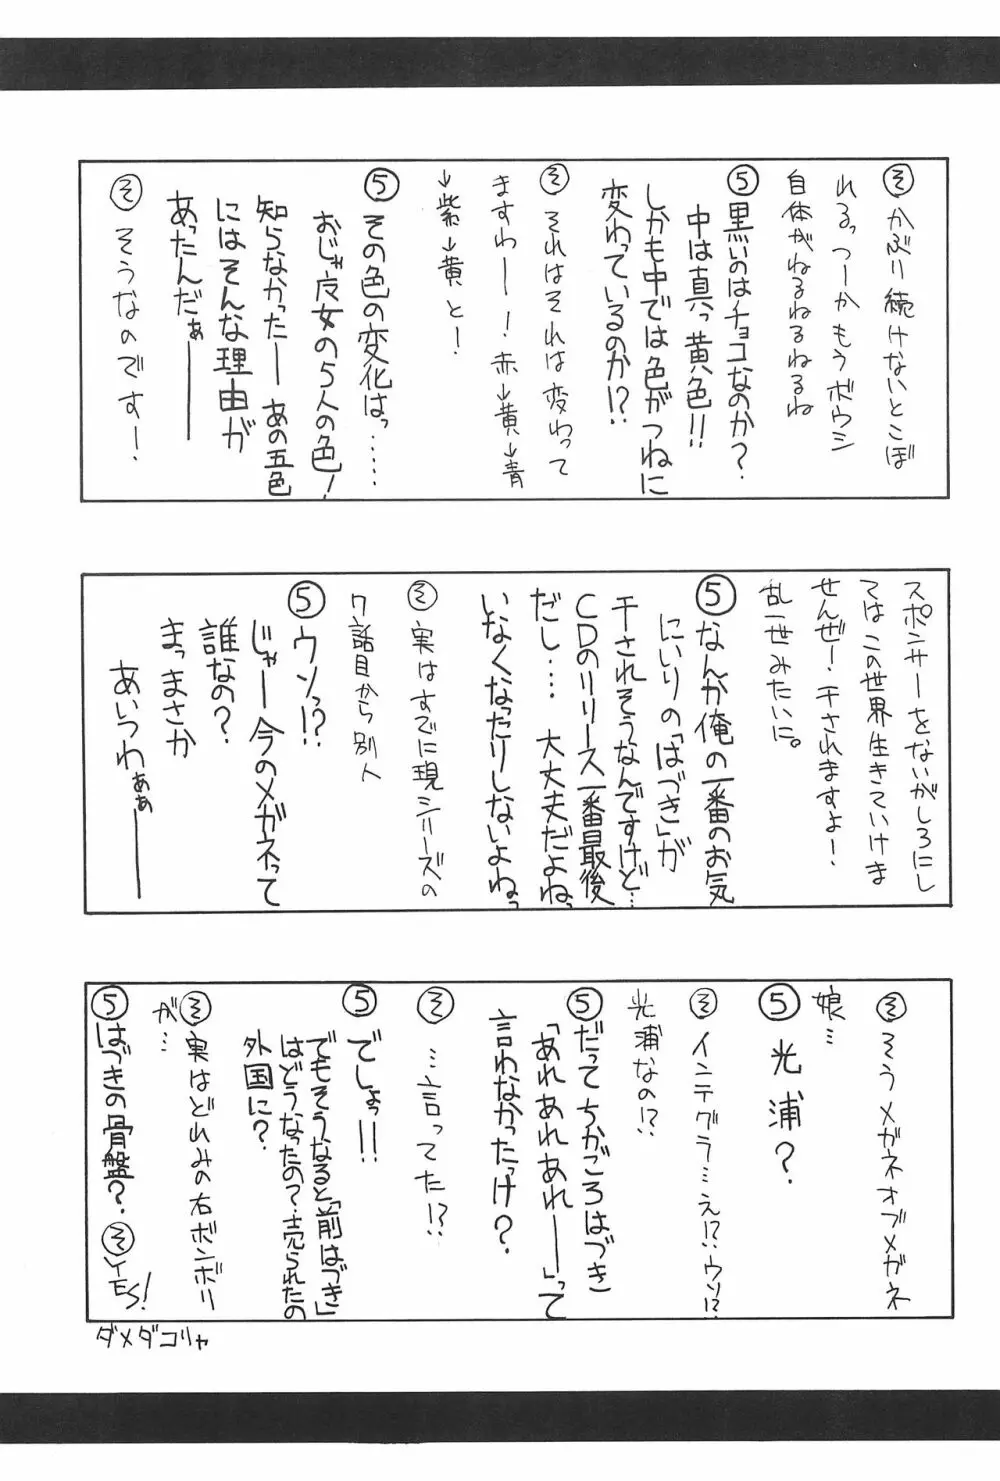 ㋞かぶり続けないとこぼ
れるっつーかもうボウシ
自体がねるねるねるね
⑤黒いのはチョコなのか?
中は真っ黄色!!
しかも中では色がつねに
変わっているのか!?
㋞それはそれは変わって
ますわー!赤→黄→青
→紫→黄と!
⑤その色の変化はっ……
おじゃ魔女の5人の色!
知らなかったーあの五色
にはそんな理由が
あったんだぁ――
㋞そうなのです!
スポンサーをないがしろにし
てはこの世界生きていけま
せんぜー!干されますよ!
乱一世みたいに。
⑤なんか俺の一番のお気
にいりの「はづき」が
干されそうなんですけど…
CDのリリース一番最後
だし… 大丈夫だよねっ
いなくなったりしないよねっ
㋞実はすでに現シリーズの
7話目から別人
⑤ウソっ!?
じゃー今のメガネって
誰なの?
まっまさか
あいつわぁぁ――
㋞そうメガネオブメガネ
娘…
⑤光浦?
㋞インテグラ…え!?ウソ!?
光浦なの!?
⑤だってちかごろはづき
「あれあれあれ――」って
言わなかったっけ?
㋞…言ってた!?
⑤でしょっ!!
でもそうなると「前はづき」
はどうなったの?売られたの
外国に?
㋞実はどれみの右ボンボリ
が…
⑤はづきの骨盤?
㋞YES!
ダメダコリャ